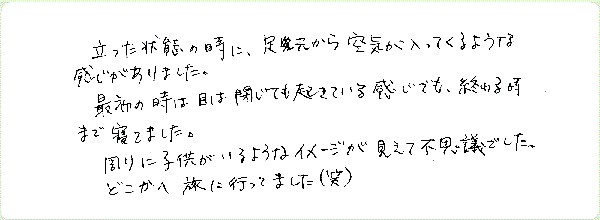 立った状態の時に、足元から空気が入ってくるような
感じがありました。
最初の時は目は閉じても起きている感じでも、終わる時
まで寝てました。
周りに子供がいるようなイメージが見えて不思議でした。
どこかへ旅に行ってました(笑)